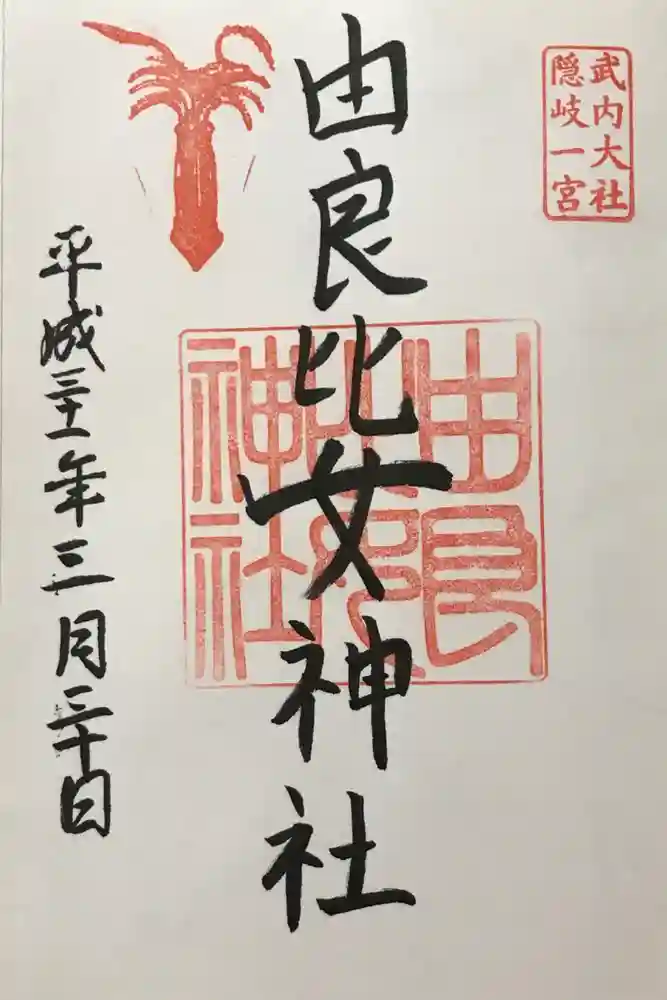 武内大社
隠岐一宮
由良比女神社
由良
比女
神社
平成三十一年三月三十日